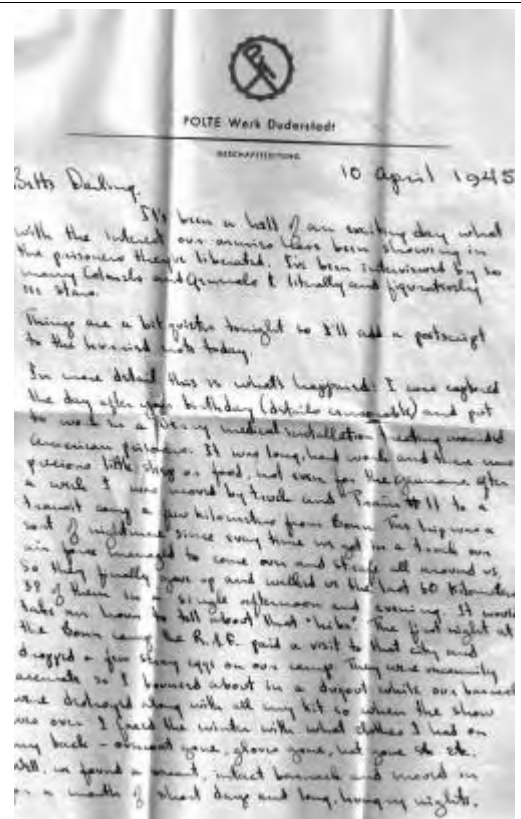 POLTE Werk Duderstadt
10 April 1945
Betts Darling,
It's been a hell of an exciting day what
with the interest our armies have been showing in
the prisoners they've liberated. I've been interviewed by so
many Colonels and Generals I literally and figuratively
see stars.
Things are a bit quieter tonight so I'll add a postscript
to the hurried note today.
In more detail this is what happened: I was captured
the day after your birthday (details censorable) and put
to work in a German medical installation treating wounded
American prisoners. It was long, hard work and there was
precious little sleep or food, not even for the Germans. After
a week I was moved by truck and train to a
transit camp a few kilometers from Bonn. The trip was a
sort of nightmare since every time we got in a truck our
air force managed to come over and strafe all around us
so they finally gave up and walked us the last 60 kilometers
38 of them in a single afternoon and evening. It would
take an hour to tell about that "hike". The first night at
the Bonn camp the R.A.F. paid a visit to that city and
dropped a few stray eggs on our camp. They were uncannily
accurate so I bounced about in a dugout while our barracks
were destroyed along with all my kit so when the show
was over I faced the winter with what clothes I had on
my back - overcoat gone, gloves gone, hat gone etc etc.
Well, we found a vacant, intact barrack and moved in
for a month of short days and long, hungry nights.